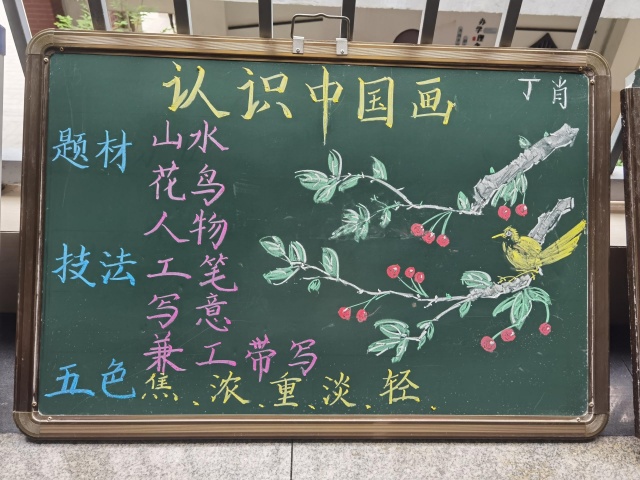 认识中国画
丁肖
题材 山水
花鸟
人物
技法 工笔
写意
兼工带写
五色 焦、浓、重、淡、轻、